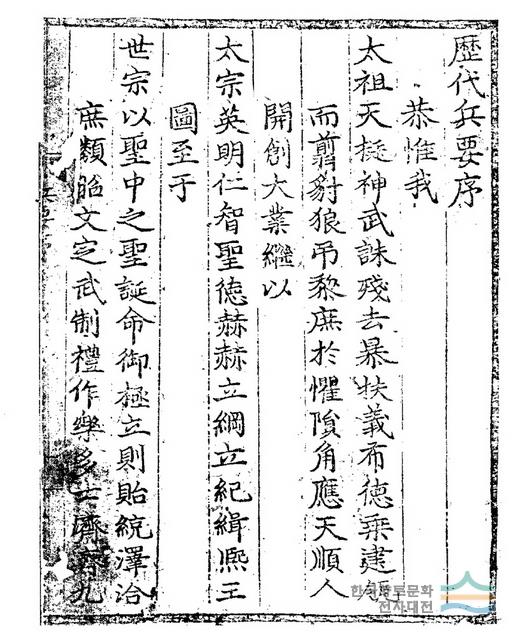 歷代兵要序
恭惟我
太祖天挺神武誅殘去暴扶義布德乘建瓴
而翦豺狼弔黎庶於懼隕角應天順人
開創大業繼以
太宗英明仁智聖德赫赫立綱立紀緝熙王
圖至于
世宗以聖中之聖誕命御極立則貽統澤洽
庶類昭文定武制禮作樂多士濟濟九
한국향토문화
전자대전